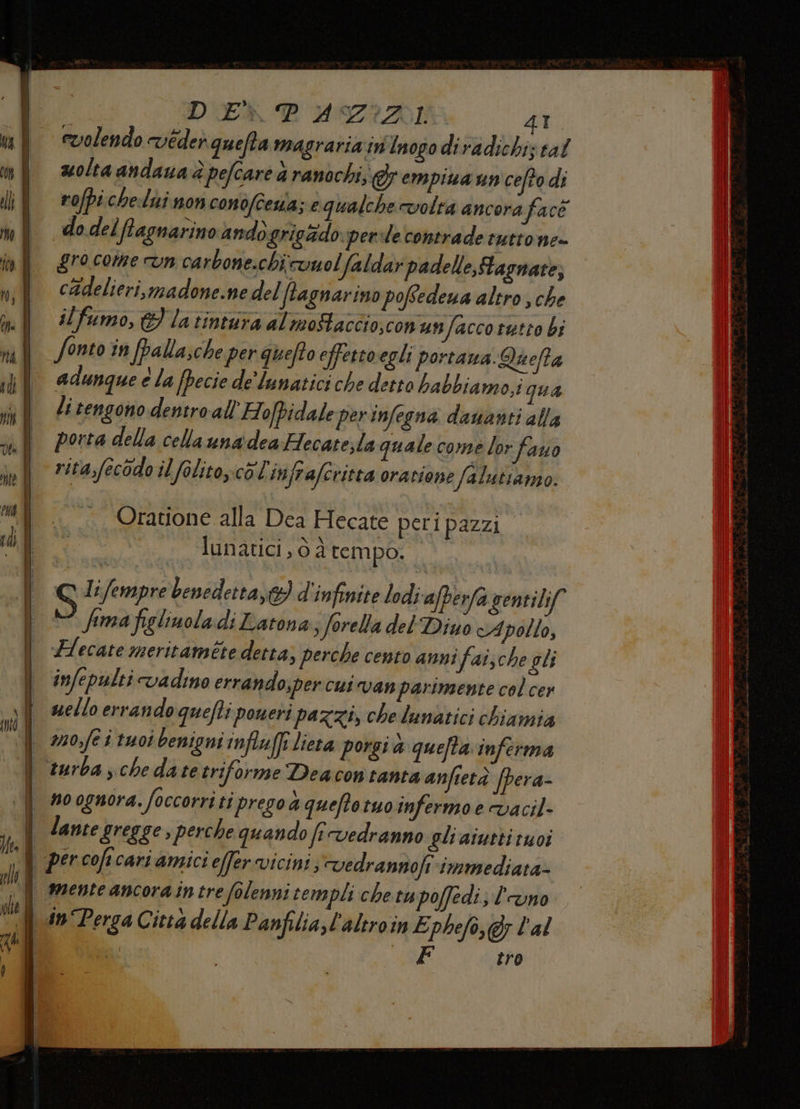 DE PAZZI. 41
volendo vẽder questa magraria in luogo di radichi; tal
uolta andaua à pescare à ranochi, & empiua un cesto di
rospi che lui non conosceua; e qualche volta ancora facẽ
do del stagnarino andò grigãdo per le contrade tutto ne-
gro come vn carbone. chi vuol saldar padelle, stagnate,
cãdelieri, madone. ne del stagnarino possedeua altro, che
il fumo, & la tintura al mostaccio, con un sacco tutto bi
sonto in spalla, che per questo effetto egli portaua. Questa
adunque è la specie de' lunatici che detto habbiamo, i qua
li tengono dentro all' Hospidale per insegna dauanti alla
porta della cella una dea Hecate, la quale come lor fauo
rita, secõdo il solito, cõ l'infrascritta oratione salutiamo.
Oratione alla Dea Hecate per i pazzi
lunatici, ò à tempo.
SIi sempre benedetta, & d'infinite lodi aspersa gentilis
sima figliuola di Latona, sorella del Diuo Apollo,
Hecate meritamẽte detta, perche cento anni fai, che gli
insepulti vadino errando, per cui van parimente col cer
uello errando questi poueri pazzi, che lunatici chiamia
mo, se i tuoi benigni influssi lieta porgi à questa inferma
turba, che da te triforme Dea con tanta ansietà spera-
no ognora. soccorri ti prego à questo tuo infermo e vacil-
lante gregge, perche quando si vedranno gli aiutti tuoi
per cosi cari amici esser vicini, vedrannosi immediata-
mente ancora in tre solenni templi che tu possedi, l'vno
in Perga Città della Panfilia, l'altro in Epheso, & l'al
F tro